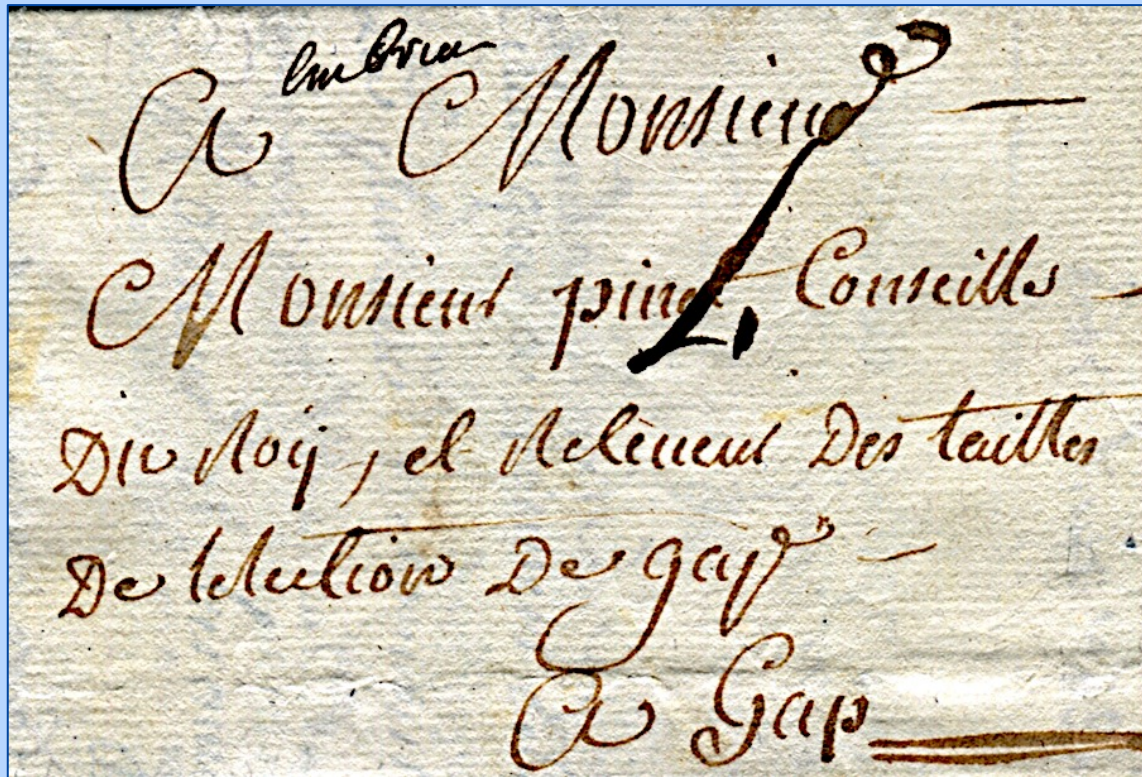 embrun
A Monsieur
Monsieur pinet Conseille
Du Roy, et Receveur Des tailles
De lelection De gap
A Gap
4